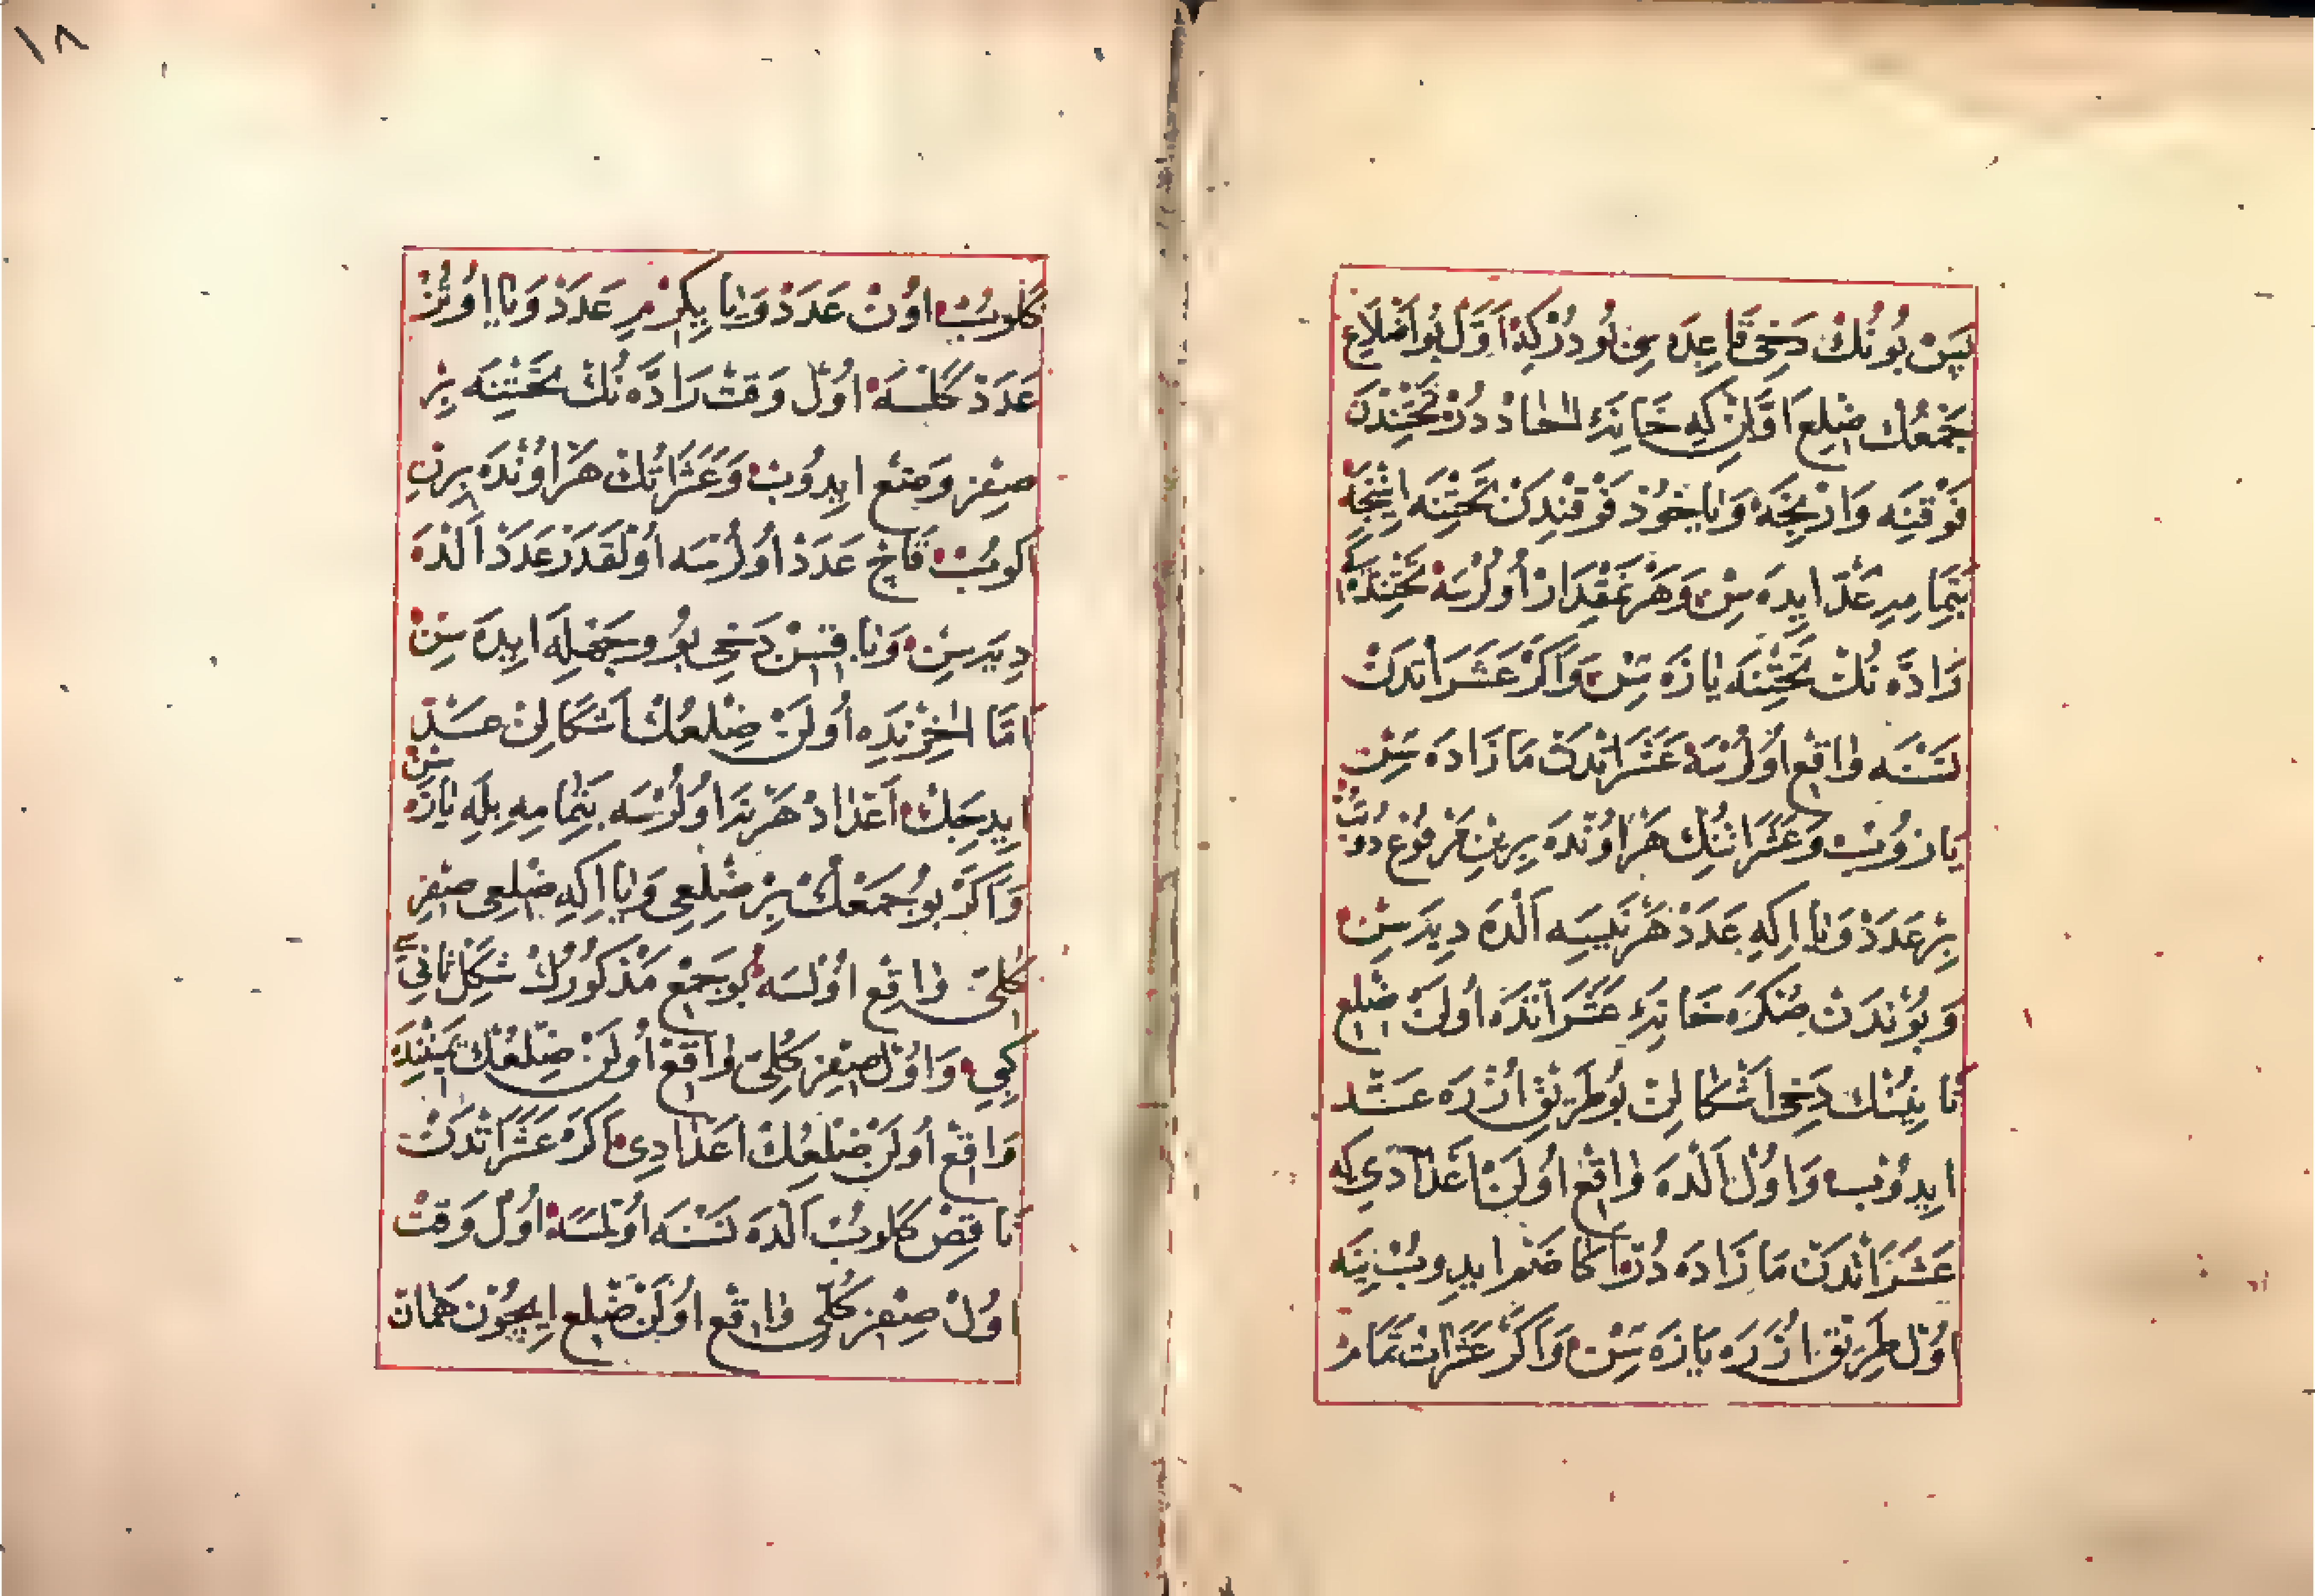 پس بونك دخی قاعده سی بودركه اول بو اضلاع
جمعك ضلع اولن كه خانۀ احاد در تحتندن
فوقنه وارنجه ویاخود فوقندن تحتنه اینجه
بتمامه عد ایده سن وهر نمقدار اولورسه تحتنده كی
زاده نك تحتنه یازه سن واكر عشراتدن
نسنه واقع اولورسه عشراتدن مازاده سن
یازوب وعشراتك هر اوننده برین مرفوع دوتوب
بر عدد ویا ایكی عدد هر نییسه الده دیرسن
وبوندن صكره خانۀ عشراتده اولن ضلع
ثانینك دخی اشكالن بو طریق ازره عد
ایدوب واول الده واقع اولن اعدادی كه
عشراتدن مازاده در اكا ضم ایدوب ینه
اول طریق ازره یازه سن واكر عشرات تمام
كلوب اون عدد ویا یكرمی عدد ویا اوتوز
عدد كلسه اول وقت زاده نك تحتنه بر
صفر وضع ایدوب وعشراتك هر اوننده برن
اكوب قاچ عدد اولورسه اولقدر عدد الده
دیرسن وباقیسن دخی بو وجهله ایده سن
اما اخرنده اولن ضلعك اشكالن عد
ایدیجك اعداد هر نه اولورسه بتمامه بله یازه سن
واكر بو جمعك بر ضلعی ویا ایكی ضلعی صفر
كلی واقع اولسه بو جمع مذكورك شكل ثانی
كبی واول صفر كلی واقع اولن ضلعك یمیننده
واقع اولن ضلعك اعدادی اكر عشراتدن
ناقص كلوب الده نسنه اولمسه اول وقت
اول صفر كلی واقع اولن ضلع ایچون همان
١٨